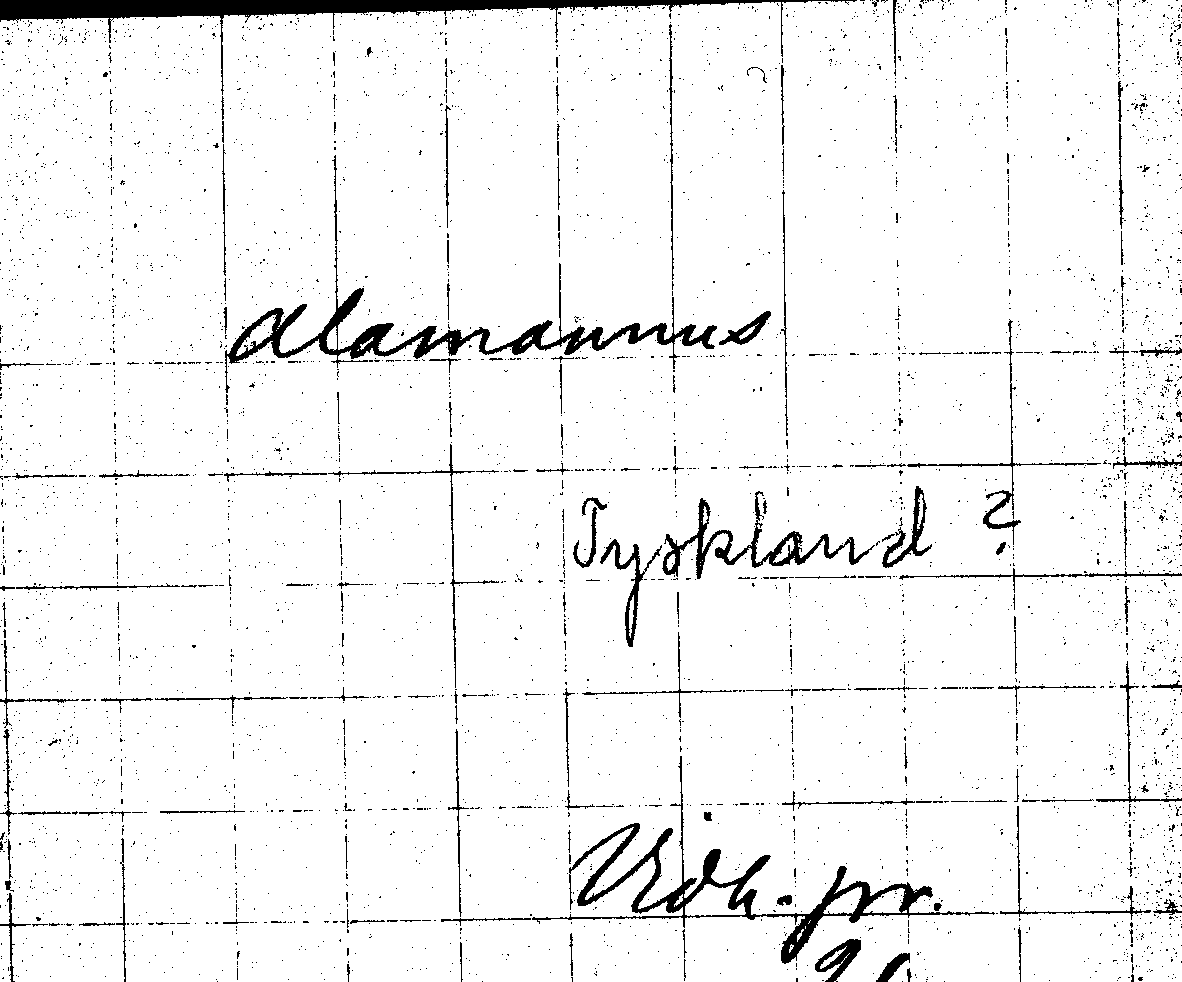 Alamannus
Tyskland ?
Vidk. pr.